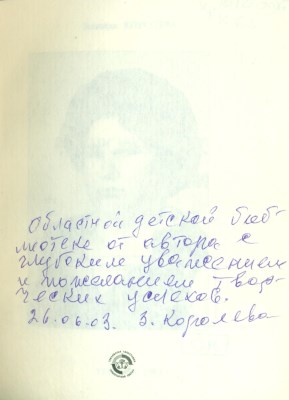 Областной детской биб-
лиотеке от автора с
глубоким уважением
и пожеланием твор-
ческих успехов.
26.06.03. З. Королева